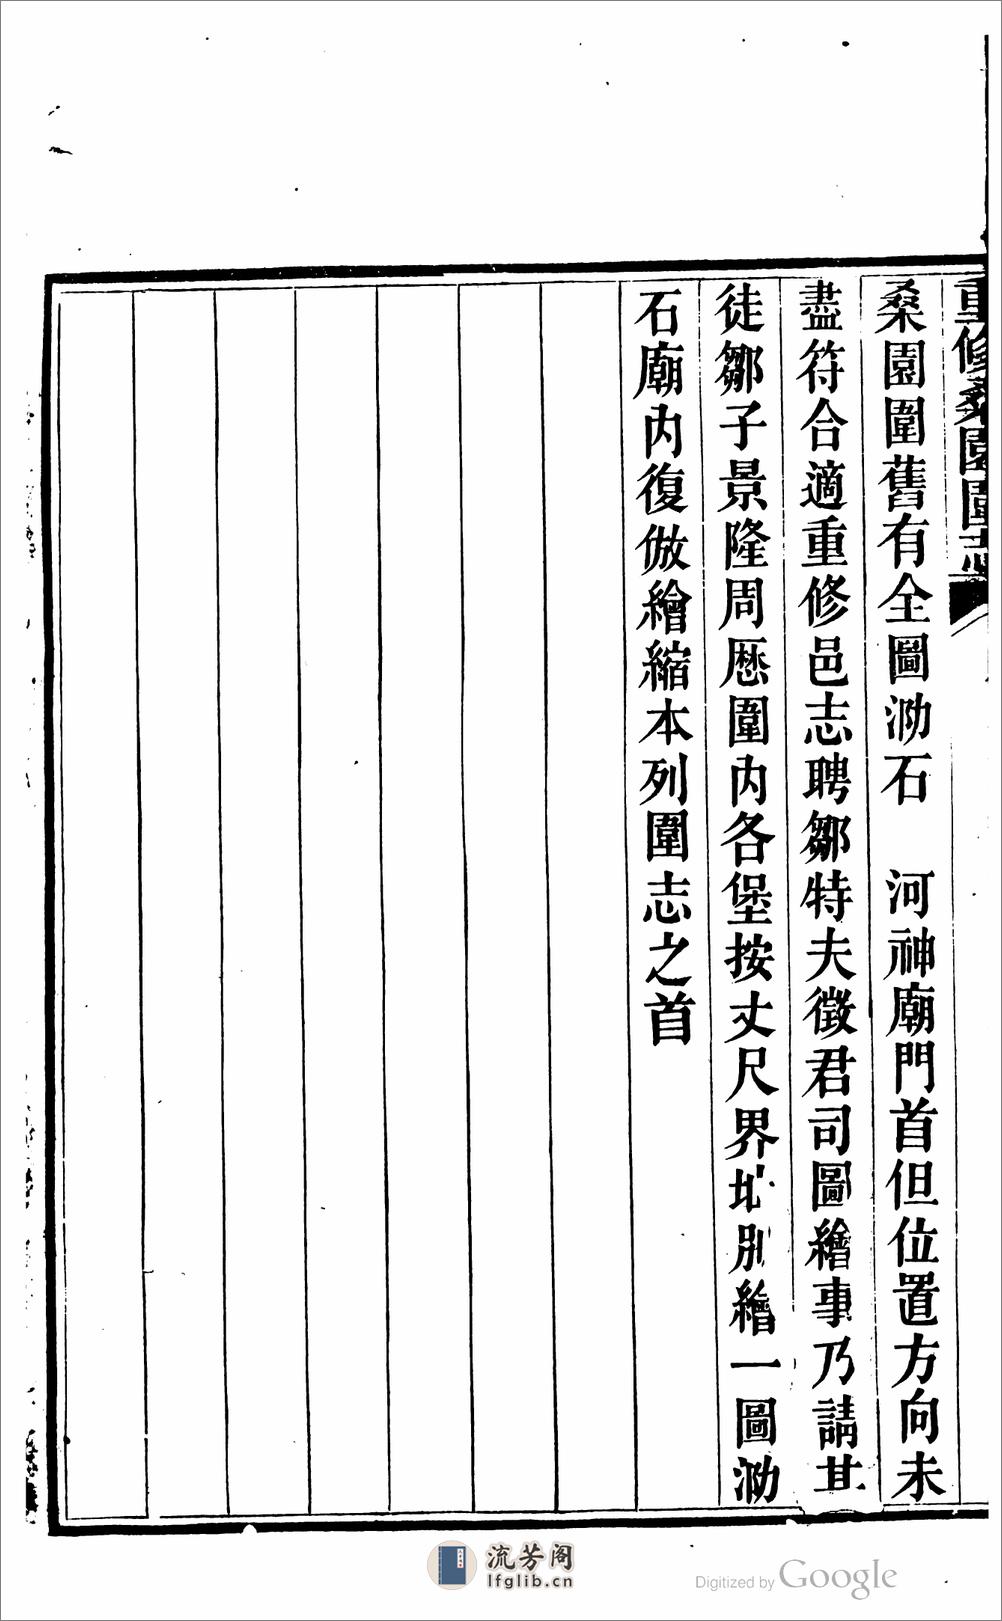 重修桑園圍志
桑園圍舊有全圖泐石　河神廟門首但位置方向未
盡符合適重修邑志聘鄒特夫徵君司圖繪事乃請其
徒鄒子景隆周歷圍內各堡按丈尺界址別繪一圖泐
石廟內復倣繪縮本列圍志之首
流芳阁
lfglib.cn
Digitized by Google